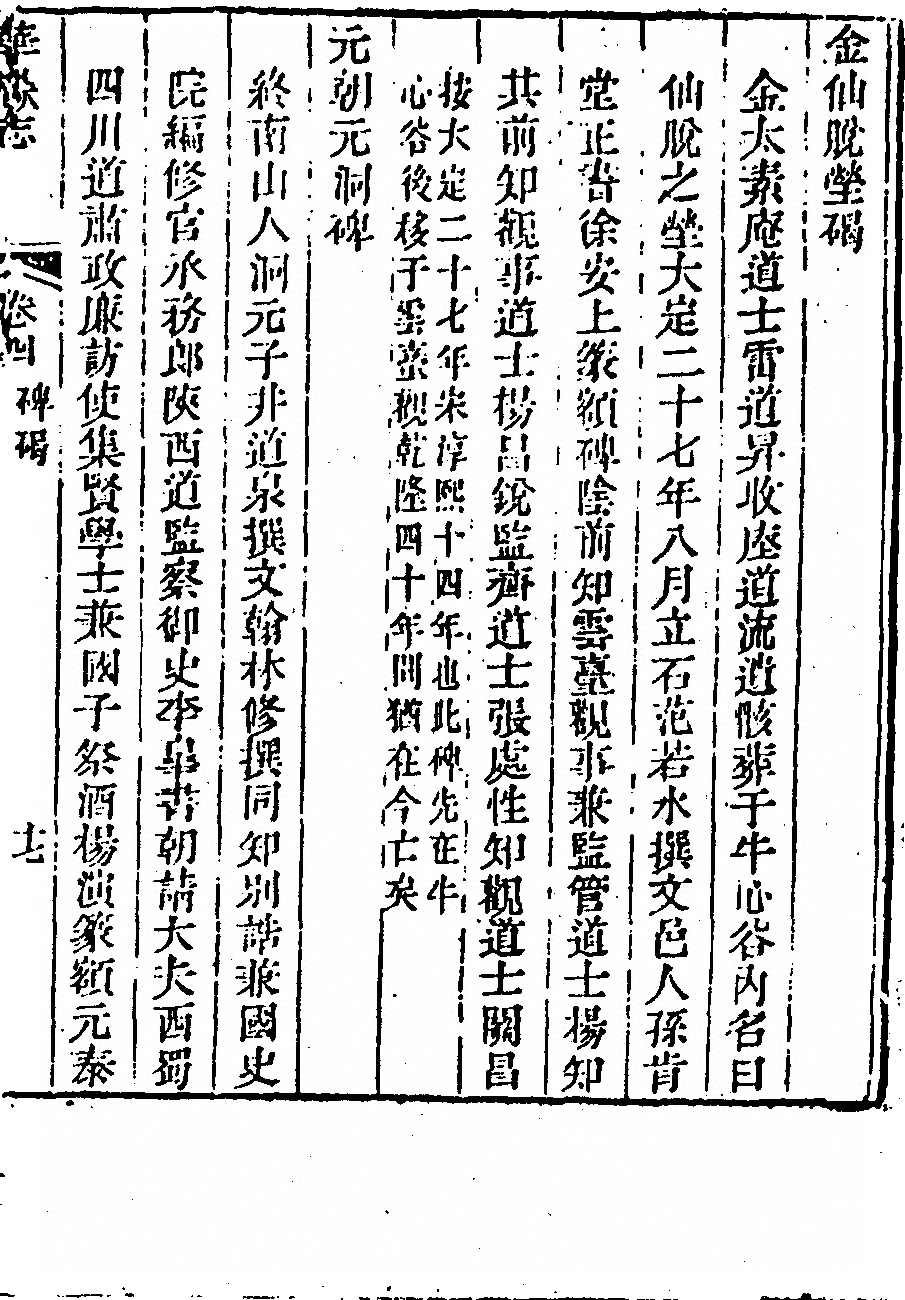 金仙脫塋碣
金太素庵道士雷道昇收座道流逍骸葬于牛心谷內名曰
仙脫之塋大定二十七年八月立石范若水撰文邑人孫肯
堂正書徐安上篆額碑陰前知雲臺觀事兼監管道士揚知
共前知觀事道士楊昌銳監齋道士張處性知觀道士關昌
按大定二十七年宋淳熙十四年也此碑先在牛
心谷後移于雲臺觀乾隆四十年間猶在今亡矣
元朝元洞碑
終南山人洞元子井道泉撰文翰林修撰同知別誥兼國史
院編修官承務郎陝西道監察御史李臯書朝請大夫西蜀
四川道肅政廉訪使集賢學士兼國子祭酒揚演篆額元泰
華嶽志
卷四
碑碣
十七